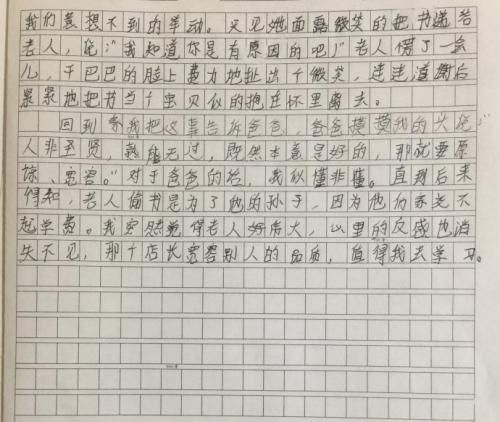 我们意想不到的举动。只见她面露微笑的把书递给
老人，说："我知道你是有原因的吧！"老人愣了一会
儿，干巴巴的脸上费力地扯出个微笑，连连道谢后
紧紧地把书当个宝贝似的抱在怀里离去。
回到家我把这事告诉爸爸，爸爸摸摸我的头说："
人非圣贤，孰能无过，既然本意是好的，那就要原
谅、宽容。"对于爸爸的话，我似懂非懂。直到后来
得知，老人偷书是为了他的孙子，因为他们家充不
起学费。我突然觉得老人好伟大，心里的反感也消
失不见，那个店长宽容别人的品质，值得我去学习。